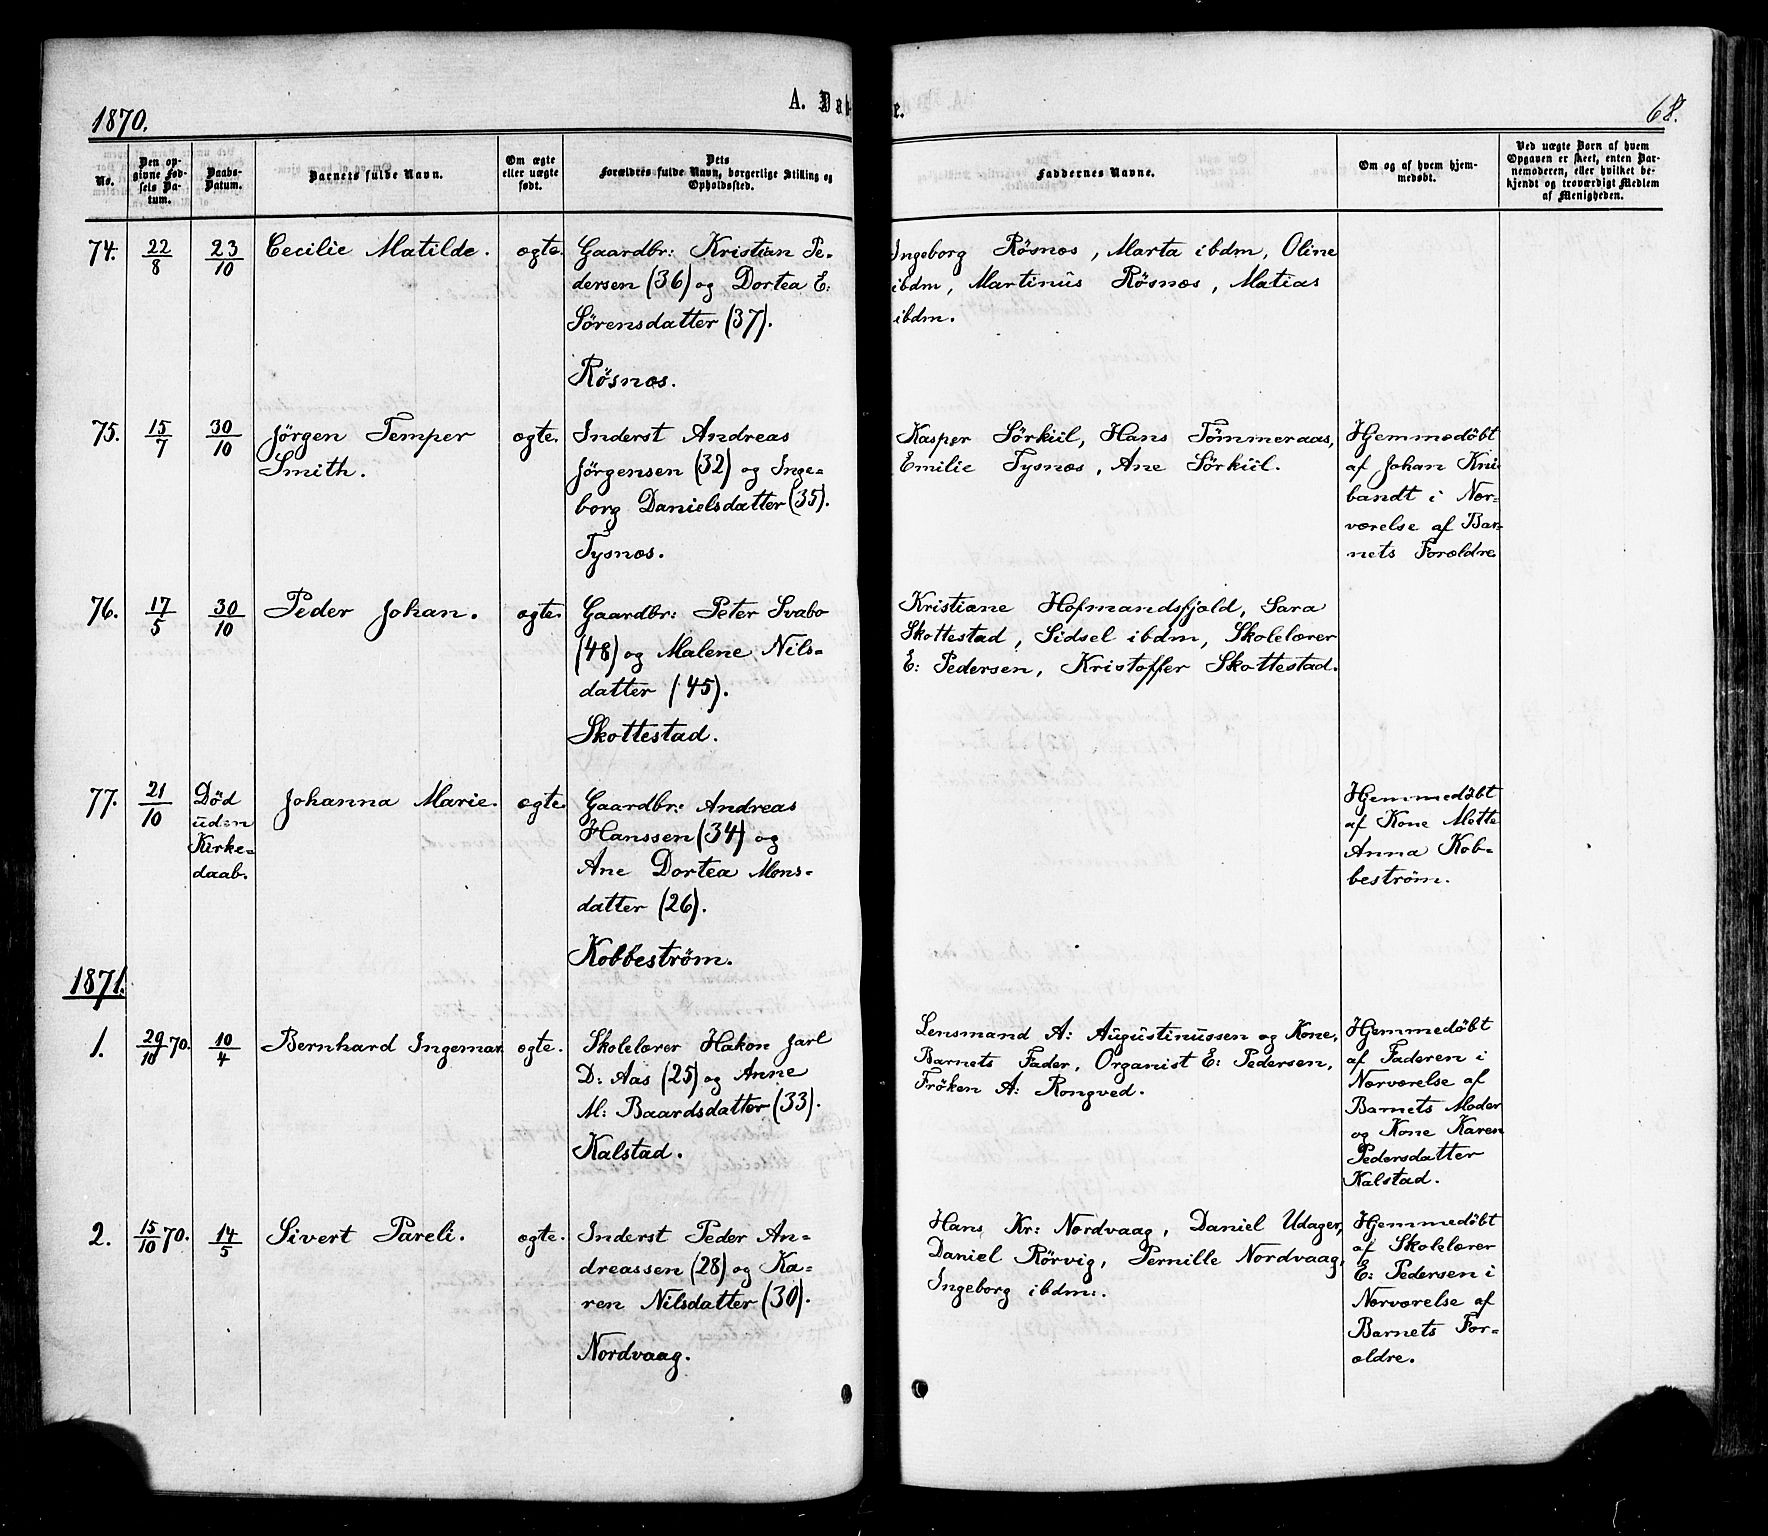 1870.
A. Døb-
e.
68.
No.
Den op-
givne Fød-
sels Da-
tum.
Daabs-
Datum.
Barnets fulde Navn.
Om ægte
eller uægte
født.
Dets
Forældres fulde Navn, borgerlige Stilling og
Opholdssted.
Faddernes Navne.
Om og af hvem hjem-
medøbt.
Ved uægte Børn af hvem
Opgaven er skeet, enten Bar-
nemoderen, eller hvilket be-
kjendt og troværdigt Medlem
af Menigheden.
74. 22/8 23/10 Cecilie Matilde. ægte.
Gaardbr: Kristian Pe-
dersen (36) og Dortea E:
Sörensdatter (37).
Røsnæs.
Ingeborg Røsnæs, Marta ibdm, Oline
ibdm, Martinus Røsnæs, Matias
ibdm.
75. 15/7 30/10 Jörgen Temper
Smith.
ægte.
Inderst Andreas
Jörgensen (32) og Inge-
borg Danielsdatter (35).
Tysnæs.
Kasper Sörkiil, Hans Tömmeraas,
Emilie Tysnæs, Ane Sörkiil.
Hjemmedöbt
af Johan Kni
bandt i Nær-
værelse af Bar-
nets Forældre
76. 17/5 30/10 Peder Johan. ægte.
Gaardbr: Peter Svabo
(48) og Malene Nils-
datter (45).
Skottestad.
Kristiane Hofmandsfjæld, Sara
Skottestad, Sidsel ibdm, Skolelærer
E: Pedersen, Kristoffer Skottestad.
77. 21/10 Död
uden
Kirke-
daab.
Johanna Marie. ægte.
Gaardbr: Andreas
Hanssen (34) og
Ane Dortea Mons-
datter (26).
Kobbeström.
Hjemmedöbt
af Kone Mette
Anna Kob-
beström.
1871.
1. 29/10 70. 10/4 Bernhard Ingemar ægte.
Skolelærer Hakon Jarl
D: Aas (25) og Anne
M: Baardsdatter (33).
Kalstad.
Lensmand A: Augustinussen og Kone,
Barnets Fader, Organist E: Pedersen,
Fröken A: Rongved.
Hjemmedöbt
af Faderen i
Nærværelse af
Barnets Moder
og Kone Karen
Pedersdatter
Kalstad.
2. 15/10 70. 14/5 Sivert Pareli. ægte.
Inderst Peder An-
dreassen (28) og Ka-
ren Nilsdatter (30).
Nordvaag.
Hans Kr: Nordvaag, Daniel Udager,
Daniel Rörvig, Pernille Nordvaag,
Ingeborg ibdm:.
Hjemmedöbt
af Skolelærer
E: Pedersen i
Nærværelse af
Barnets For-
ældre.